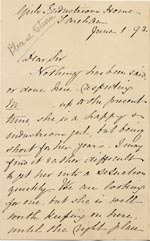 Girls Industrial Home
Fareham
June 1. 93.
Please Return
Dear Sir
Nothing has been said
or done here respecting
E. up to the present
time she is a happy &
industrious girl, but being
short for her years. I may
find it rather difficult
to get her into a situation
quickly. We are looking
for one, but she is well
worth keeping on here,
until the right place